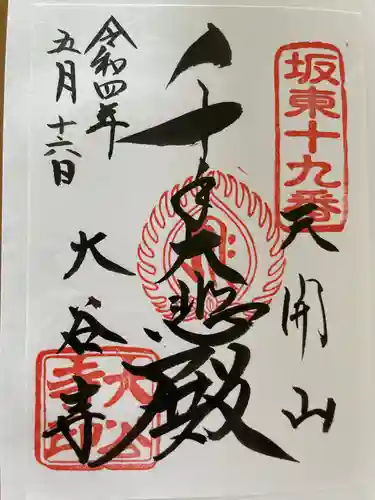 坂東十九番
天開山
千手大悲殿
大谷寺
令和四年
五月十六日